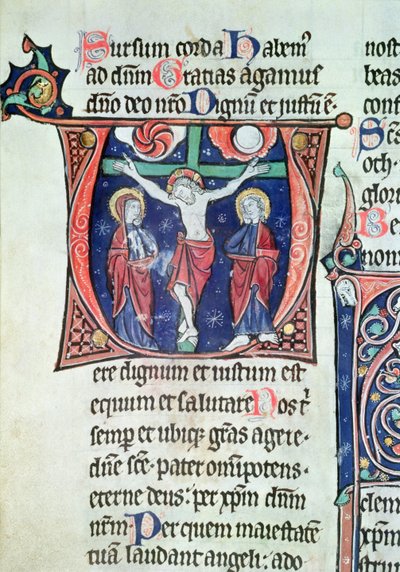 Sursum corda Habem᾽
ad dn̄m Gratias agamus
dn̄o deo nr̄o Dignū et iustū ē.
Vere dignum et iustum est
equum et salutare Nos t̄
semp̄ et ubiq; grās agere
dn̄e sc̄e. pater omīpotens.
eterne deus: per xp̄m dn̄m
nr̄m. Per quem maiestatē
tuā laudant angeli: ado
nost
beas
conf
och.
glori
nom
clem
xp̄m